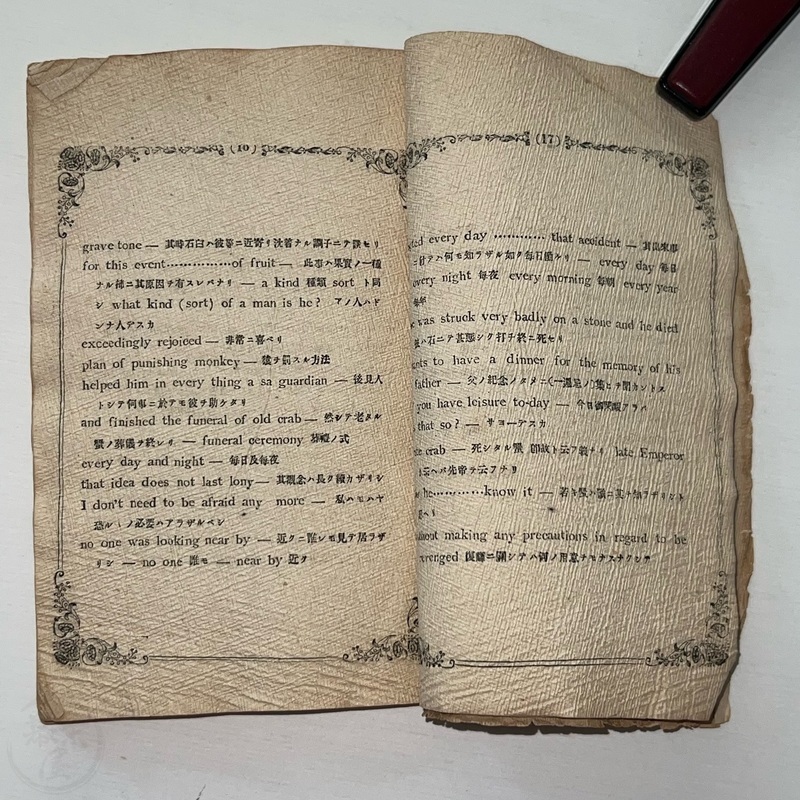 (16)
grave tone — 其時石臼ハ彼等ニ近寄リ沈着ナル調子ニテ談セリ
for this event……………of fruit — 此事ハ果實ノ一種
ナル柿ニ其原因ヲ有スレバナリ — a kind 種類 sort ト同
シ what kind (sort) of a man is he? アノ人ハド
ンナ人デスカ
exceedingly rejoiced — 非常ニ喜ベリ
plan of punishing monkey — 猿ヲ罰スル方法
helped him in every thing a sa guardian — 後見人
トシテ何事ニ於テモ彼ヲ助ケタリ
and finished the funeral of old crab — 然シテ老タル
蟹ノ葬儀ヲ終レリ — funeral ceremony 葬禮ノ式
every day and night — 毎日及毎夜
that idea does not last lony — 其觀念ハ長ク續カザリシ
I don't need to be afraid any more — 私ハモハヤ
恐ルヽノ必要ハアラザルベシ
no one was looking near by — 近クニ誰レモ見テ居ラザ
リシ — no one 誰モ — near by 近ク
(17)
every day ………… that accident — 其出來事
ニ付テハ何モ知ラザル如ク毎日 — every day 毎日
every night 毎夜 every morning 毎朝 every year
毎年
was struck very badly on a stone and he died
石ニテ甚シク打チ死セリ
to have a dinner for the memory of his
father — 父ノ記念ノタメニ
you have leisure to-day — 今日
that so? — サヨーデスカ
crab — 死シタル蟹 late Emperor
先帝ヲ云フナリ
he…………know it —
making any precautions in regard to be
revenged 復讐ニ關シテハ何ノ用意ヲモナスナクシテ